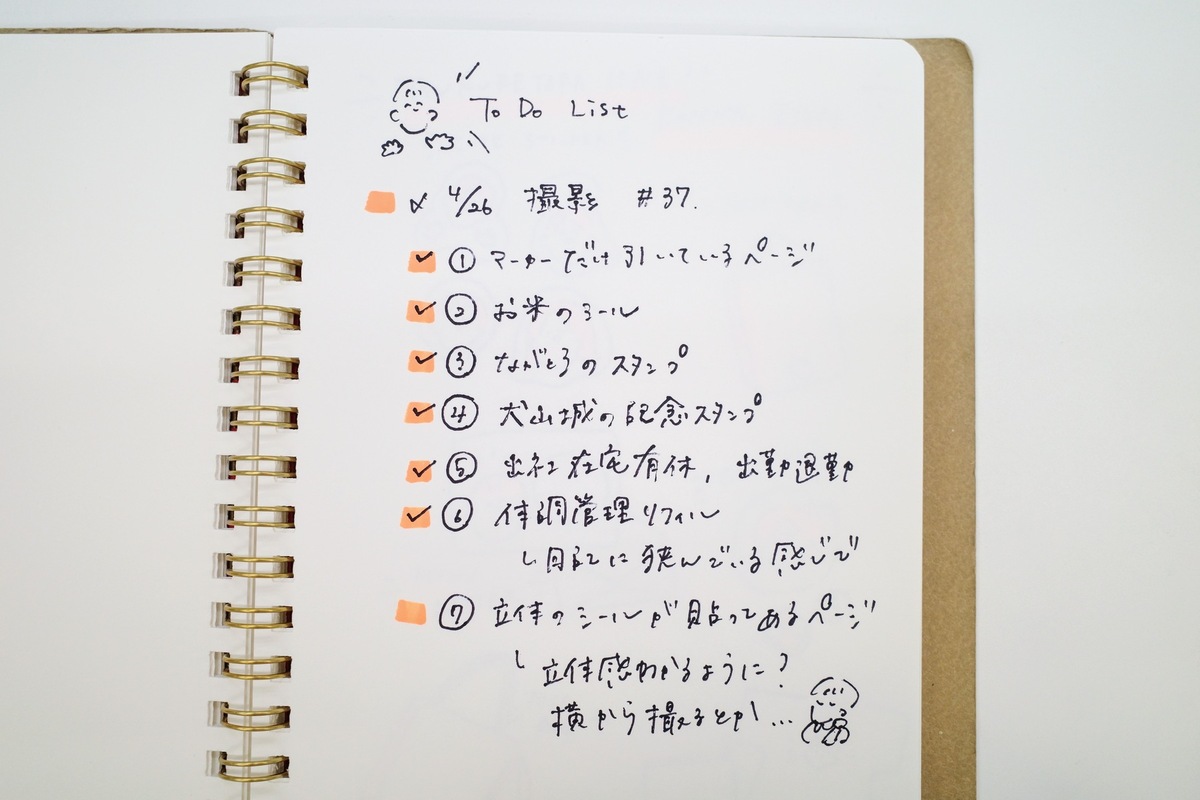 To Do List
〆 4/26 撮影 #37.
① マーカーだけ引いているページ
② お米のシール
③ ながとろのスタンプ
④ 犬山城の記念スタンプ
⑤ 出社在宅有休, 出勤退勤
⑥ 体調管理リフィル
└ 日記に挟んでいる感じで
⑦ 立体のシールが貼ってあるページ
└ 立体感わかるように?
横から撮るとか...